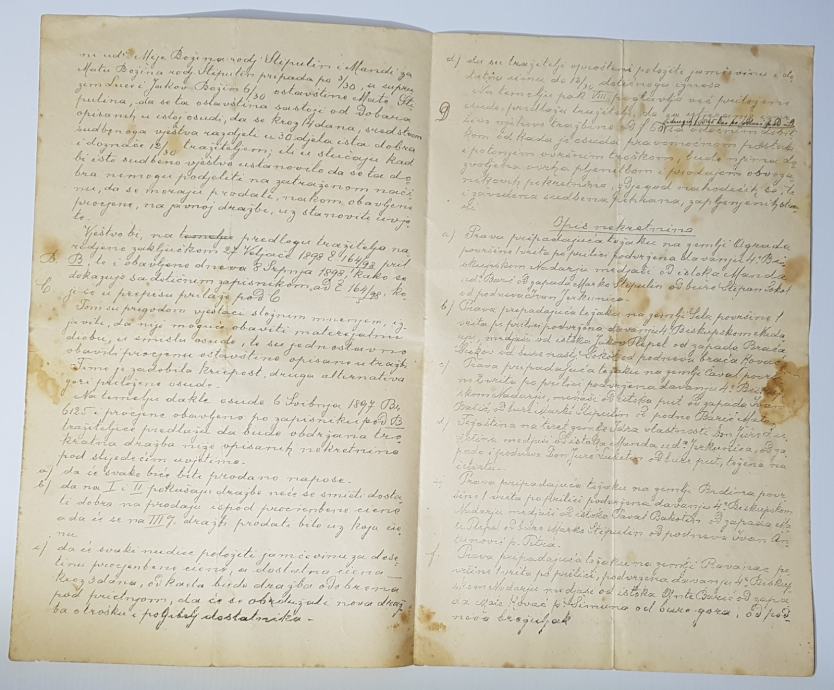 ni ud.ᵉ Mije Božina rodj. Stipulin i Mandi za
Matu Božina rodj. Stipulin pripada po 3/30, a supru-
zim Luce i Jakov Božin 6/30 ostavštine Mate Sti-
pulina, da se ta ostavština sastoji od Dobara
opisanih u istoj osudi, da se kroz 14 dana, sredstvom
sudbenoga vještva razdjele u 30 djela ista dobra
i doznače 12/30 tražiteljem; ili u slučaju kad
bi isto sudbeno vještvo ustanovilo da se ta do-
bra nemogu podjeliti na zatraženom nači-
nu, da se moraju prodati, nakom obavljene
procjene, na javnoj dražbi, uz stanovite uvje-
te.
Vještvo bi, na predlogu tražitelja na-
redjeno zaključkom 27 Veljače 1898 Č 164/98 pril
B. B, te i obavljeno dneva 8 Srpnja 1898, kako se
dokazuje sa dotičnim zapisnikom ad Č 164/98, ko-
C. ji će u prepisu prilaže pod C
Tom su prigodom vještaci složnim mnenjem, iz-
javili, da nije moguće obaviti materijalnu
diobu, u smislu osude, te su jednostavno
obavili procjenu ostavštine opisane u tražbi
Time je zadobila kriepost, druga alternativa
gori priložene osude.
Na temelju dakle osude 6 Svibnja 1897 Br.
612 I i procjene obavljene po zapisniku pod B
tražiteljice predlažu da bude obdržana tro-
kratna dražba niže opisanih nekretnina
pod sljedećim uvjetima.
a) da će svako biće biti prodano napose.
b) da na I i II pokušaju dražbe neće se smiti dosta-
ti dobra na prodaju ispod procjenbene ciene
a da će se na III oj dražbi prodati bilo uz koju cie-
nu.
c) da će svaki nudioc položiti jamčevinu za dese-
tinu procjenbene ciene, a dostatnu cienu
kroz 3 dana, od kada bude dražba odobrena
pod prietnjom, da će se obrdužati nova draž-
ba o trošku i pogibelj dostalnika.-
d) da su tražitelji oprošteni položiti jamčevinu i do-
statnu cienu do 12/30 dotičnoga iznosa
Na temelju pod VIII poglavlja već priloženo
D osude, prilažu tražitelji, da
kom od kada je osuda pravomoćnom postala
i potonjim ovršnim troškom, bude njima do-
zvoljena ovrha pljenitbom i prodajom obvoga
nekovih pokretnina, njegod nahodećih se, te
i zavedena sudbena pohrana, zapljenjenih stva-
ri.
Opis nekretnina
a) Prava pripadajuća težaku na zemlji Ograda
površine 1 vrita po prilici podvržena davanju 4ᵉ Bi-
skupskom Nadarju medjaši od istoka Manda
ud. Barić od zapada Marko Stipulin od bure Stipan Sokol
od podneva Ivan Jerkunica.
b) Prava pripadajuća težaku na zemlji Sela površine 1
vrita po prilici podvržena davanju 4ᵉ Biskupskom Nadar-
ju, medjaši od istoka Jakov Plepel od zapada Braća
od bure nasl. Sokol od podneva braća Kovač
c) Prava pripadajuća težaku na zemlji Čaval povr-
šine ½ vrita po prilici podvržena davanju 4ᵉ Bisku-
pskom Nadarju, medjaši od istoka put od zapada Ivan
Balić, od bure Marko Stipulin od podne Barić Mate
d) Težaština na teret zemlje Jaza vlastnosti Don Jure Lu-
ketina medjaši od istoka Manda ud.ᵃ Jerkunica, od za-
pada i podneva Don Jure Luketin od bure put, težena na
četvrtu.-
e) Prava pripadajuća težaku na zemlji Brdima povr-
šine 1 vrita po prilici podvržena davanju 4ᵉ Biskupskom
Nadarju medjaši od istoka Pavao Bakotin od zapada
od bure Marko Stipulin od podneva Ivan An-
tunović p. Petra.
f) Prava pripadajuća težaku na zemlji Ravanjac po-
vršine 1 vrita po prilici, podvržena davanju 4ᵉ Bisku-
pskom Nadarju medjaši od istoka Ante Barić od zapa-
da Mate Kovač p. Šimuna od bure gora, od pod-
neva brežuljak